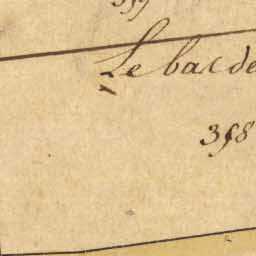 Le bac de
358